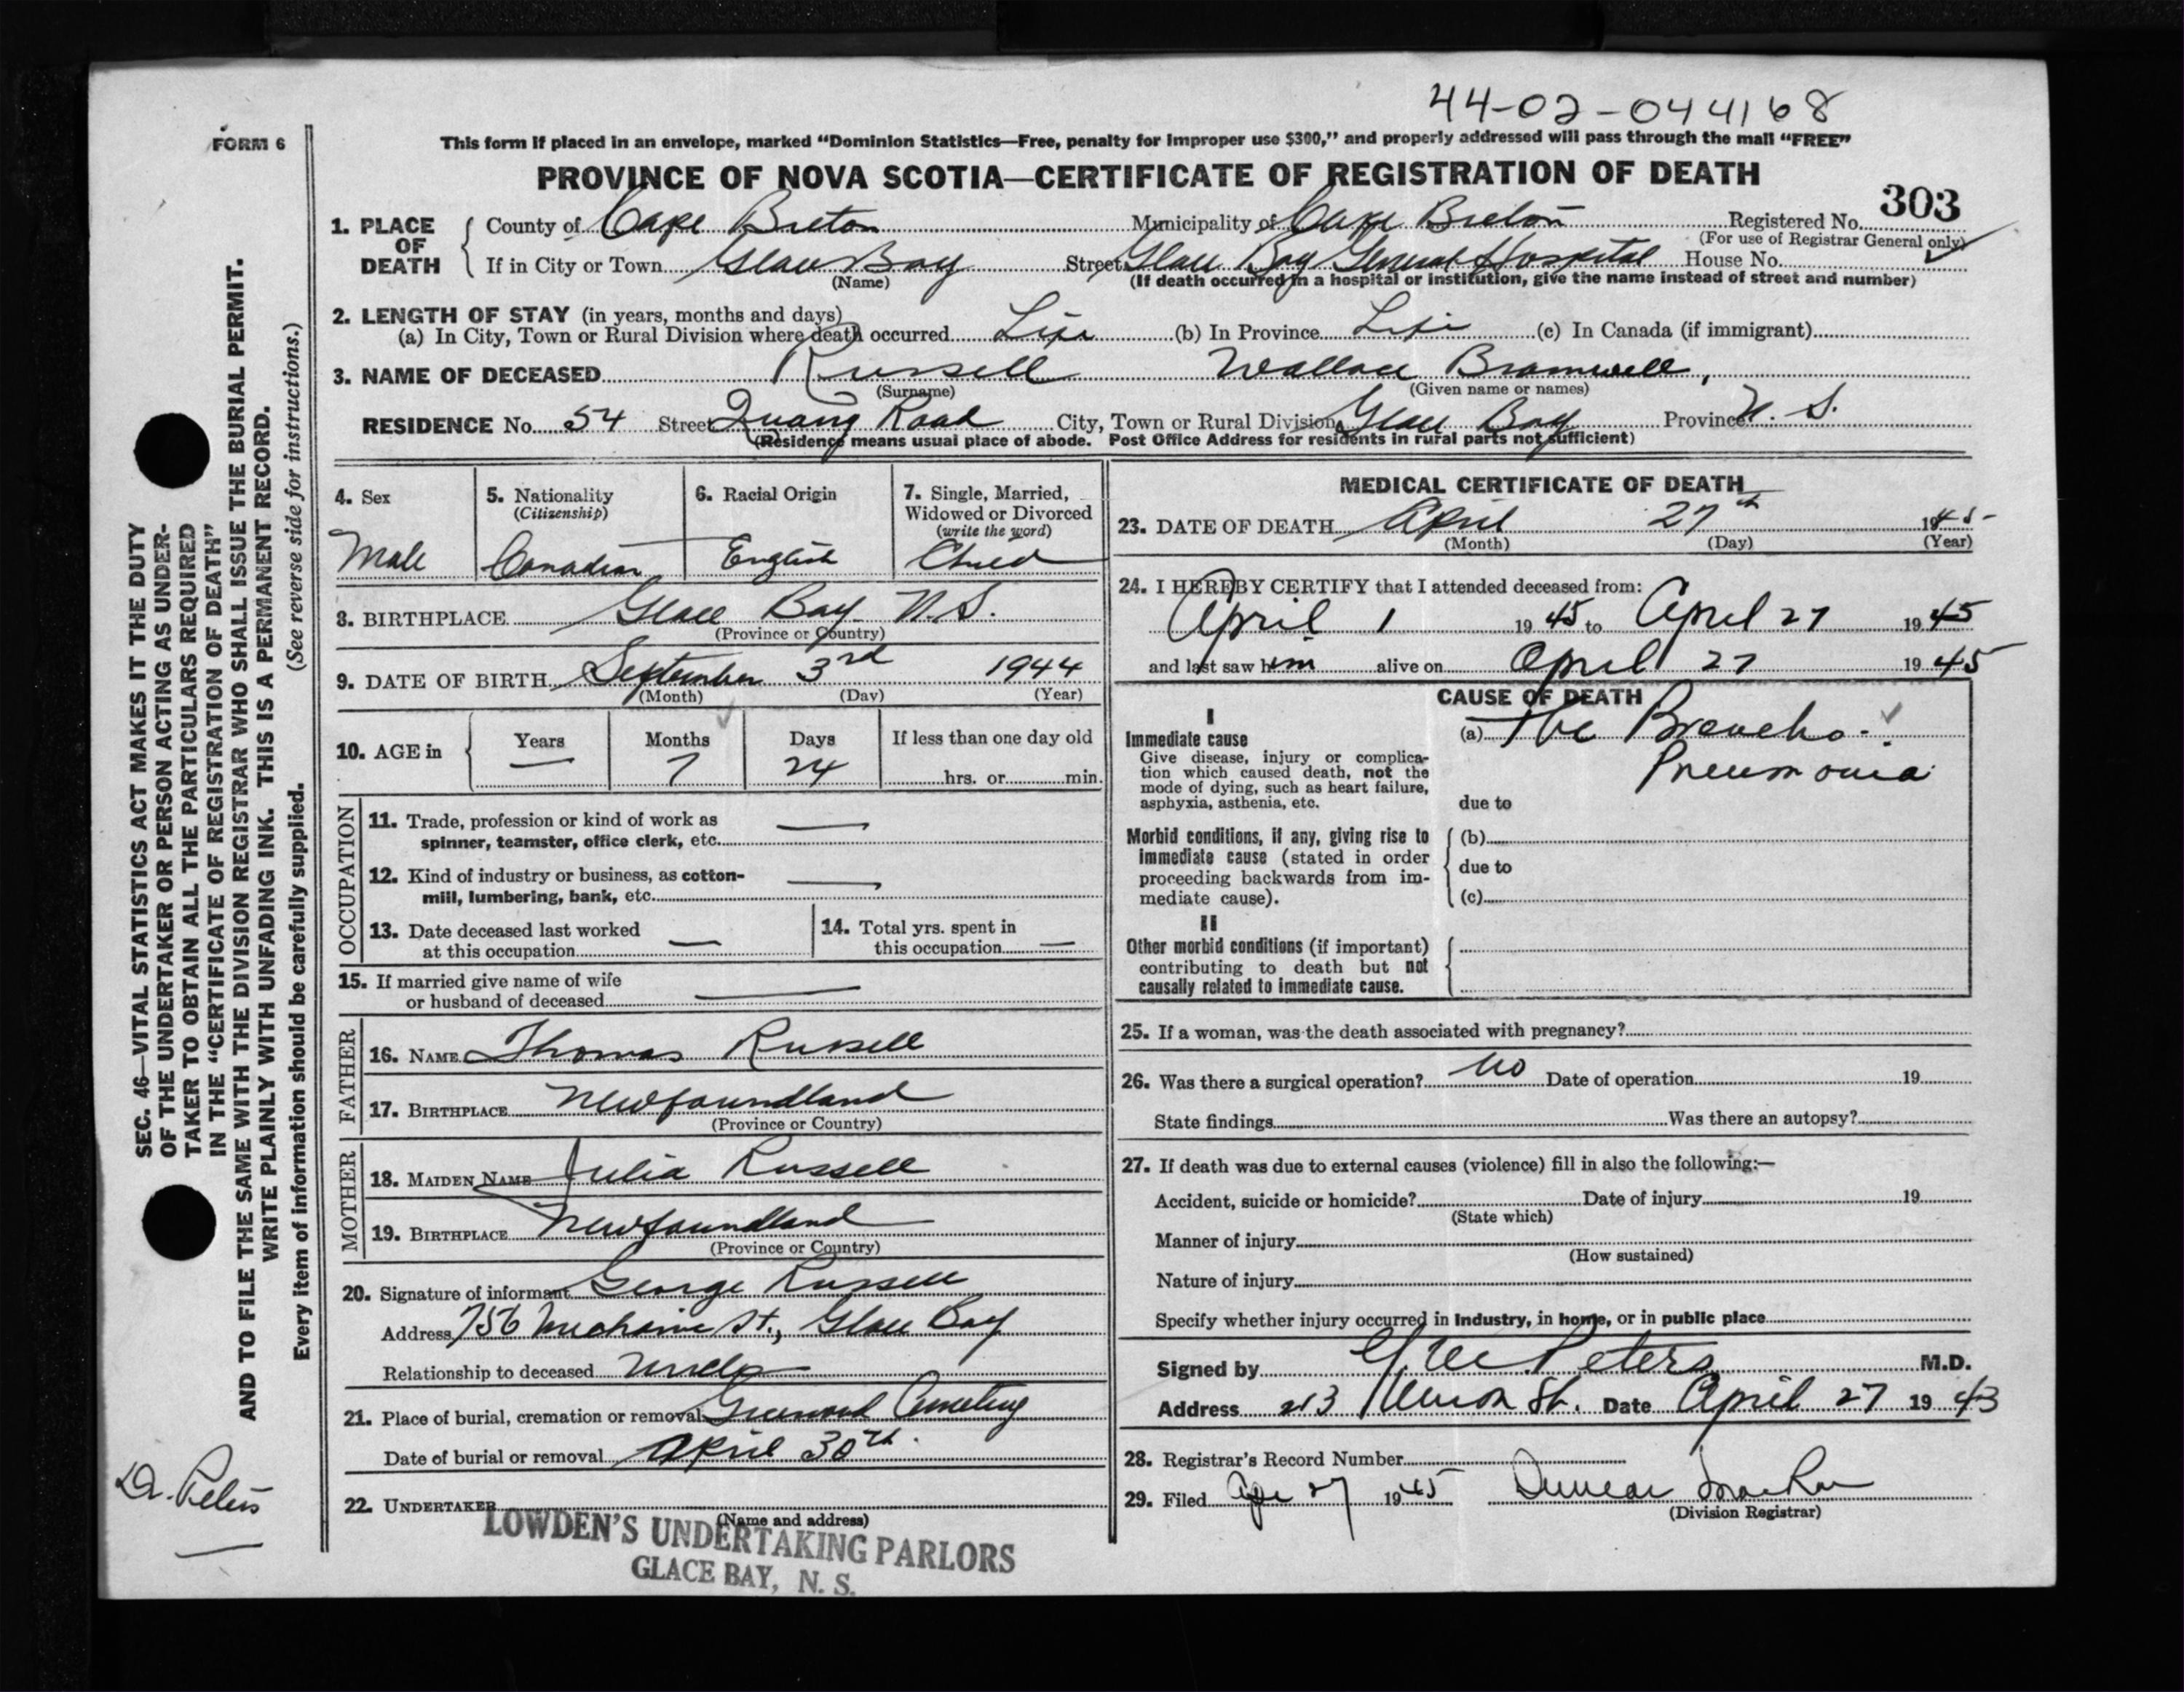 44-02-044168
FORM 6
This form if placed in an envelope, marked “Dominion Statistics—Free, penalty for improper use $300,” and properly addressed will pass through the mail “FREE”
PROVINCE OF NOVA SCOTIA—CERTIFICATE OF REGISTRATION OF DEATH
303
1. PLACE OF DEATH
County of Cape Breton Municipality of Cape Breton Registered No.
(For use of Registrar General only)
If in City or Town Glace Bay Street Glace Bay General Hospital House No.
(Name) (If death occurred in a hospital or institution, give the name instead of street and number)
2. LENGTH OF STAY (in years, months and days)
(a) In City, Town or Rural Division where death occurred Life (b) In Province Life (c) In Canada (if immigrant)
3. NAME OF DECEASED Russell Wallace Bramwell,
(Surname) (Given name or names)
RESIDENCE No. 54 Street Road City, Town or Rural Division Glace Bay Province N. S.
(Residence means usual place of abode. Post Office Address for residents in rural parts not sufficient)
4. Sex
Male
5. Nationality
(Citizenship)
Canadian
6. Racial Origin
English
7. Single, Married,
Widowed or Divorced
(write the word)
8. BIRTHPLACE Glace Bay N.S.
(Province or Country)
9. DATE OF BIRTH September 3rd 1944
(Month) (Day) (Year)
10. AGE in
Years Months Days If less than one day old
— 7 24 hrs. or min.
OCCUPATION
11. Trade, profession or kind of work as
spinner, teamster, office clerk, etc. —
12. Kind of industry or business, as cotton-
mill, lumbering, bank, etc. —
13. Date deceased last worked
at this occupation —
14. Total yrs. spent in
this occupation —
15. If married give name of wife
or husband of deceased —
FATHER
16. NAME Thomas Russell
17. BIRTHPLACE Newfoundland
(Province or Country)
MOTHER
18. MAIDEN NAME Julia Russell
19. BIRTHPLACE Newfoundland
(Province or Country)
20. Signature of informant George Russell
Address 756 St., Glace Bay
Relationship to deceased Uncle
21. Place of burial, cremation or removal Greenwood Cemetery
Date of burial or removal April 30th.
22. UNDERTAKER
(Name and address)
LOWDEN'S UNDERTAKING PARLORS
GLACE BAY, N. S.
MEDICAL CERTIFICATE OF DEATH
23. DATE OF DEATH April 27th 1945
(Month) (Day) (Year)
24. I HEREBY CERTIFY that I attended deceased from:
April 1 19 45 to April 27 19 45
and last saw him alive on April 27 19 45
CAUSE OF DEATH
I
Immediate cause
Give disease, injury or complica-
tion which caused death, not the
mode of dying, such as heart failure,
asphyxia, asthenia, etc.
(a) Broncho-
Pneumonia
due to
Morbid conditions, if any, giving rise to
immediate cause (stated in order
proceeding backwards from im-
mediate cause).
(b)
due to
(c)
II
Other morbid conditions (if important)
contributing to death but not
causally related to immediate cause.
25. If a woman, was the death associated with pregnancy?
26. Was there a surgical operation? No Date of operation 19
State findings Was there an autopsy?
27. If death was due to external causes (violence) fill in also the following:—
Accident, suicide or homicide? Date of injury 19
(State which)
Manner of injury
(How sustained)
Nature of injury
Specify whether injury occurred in industry, in home, or in public place
Signed by Peters M.D.
Address Union St. Date April 27 19 43
28. Registrar's Record Number
29. Filed Apr 27 19 45 Duncan MacRae
(Division Registrar)
SEC. 46—VITAL STATISTICS ACT MAKES IT THE DUTY
OF THE UNDERTAKER OR PERSON ACTING AS UNDER-
TAKER TO OBTAIN ALL THE PARTICULARS REQUIRED
IN THE “CERTIFICATE OF REGISTRATION OF DEATH”
AND TO FILE THE SAME WITH THE DIVISION REGISTRAR WHO SHALL ISSUE THE BURIAL PERMIT.
WRITE PLAINLY WITH UNFADING INK. THIS IS A PERMANENT RECORD.
Every item of information should be carefully supplied. (See reverse side for instructions.)
Dr. Peters